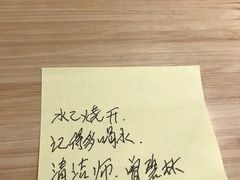 水已烧开.
记得多喝水
清洁师.曾碧林